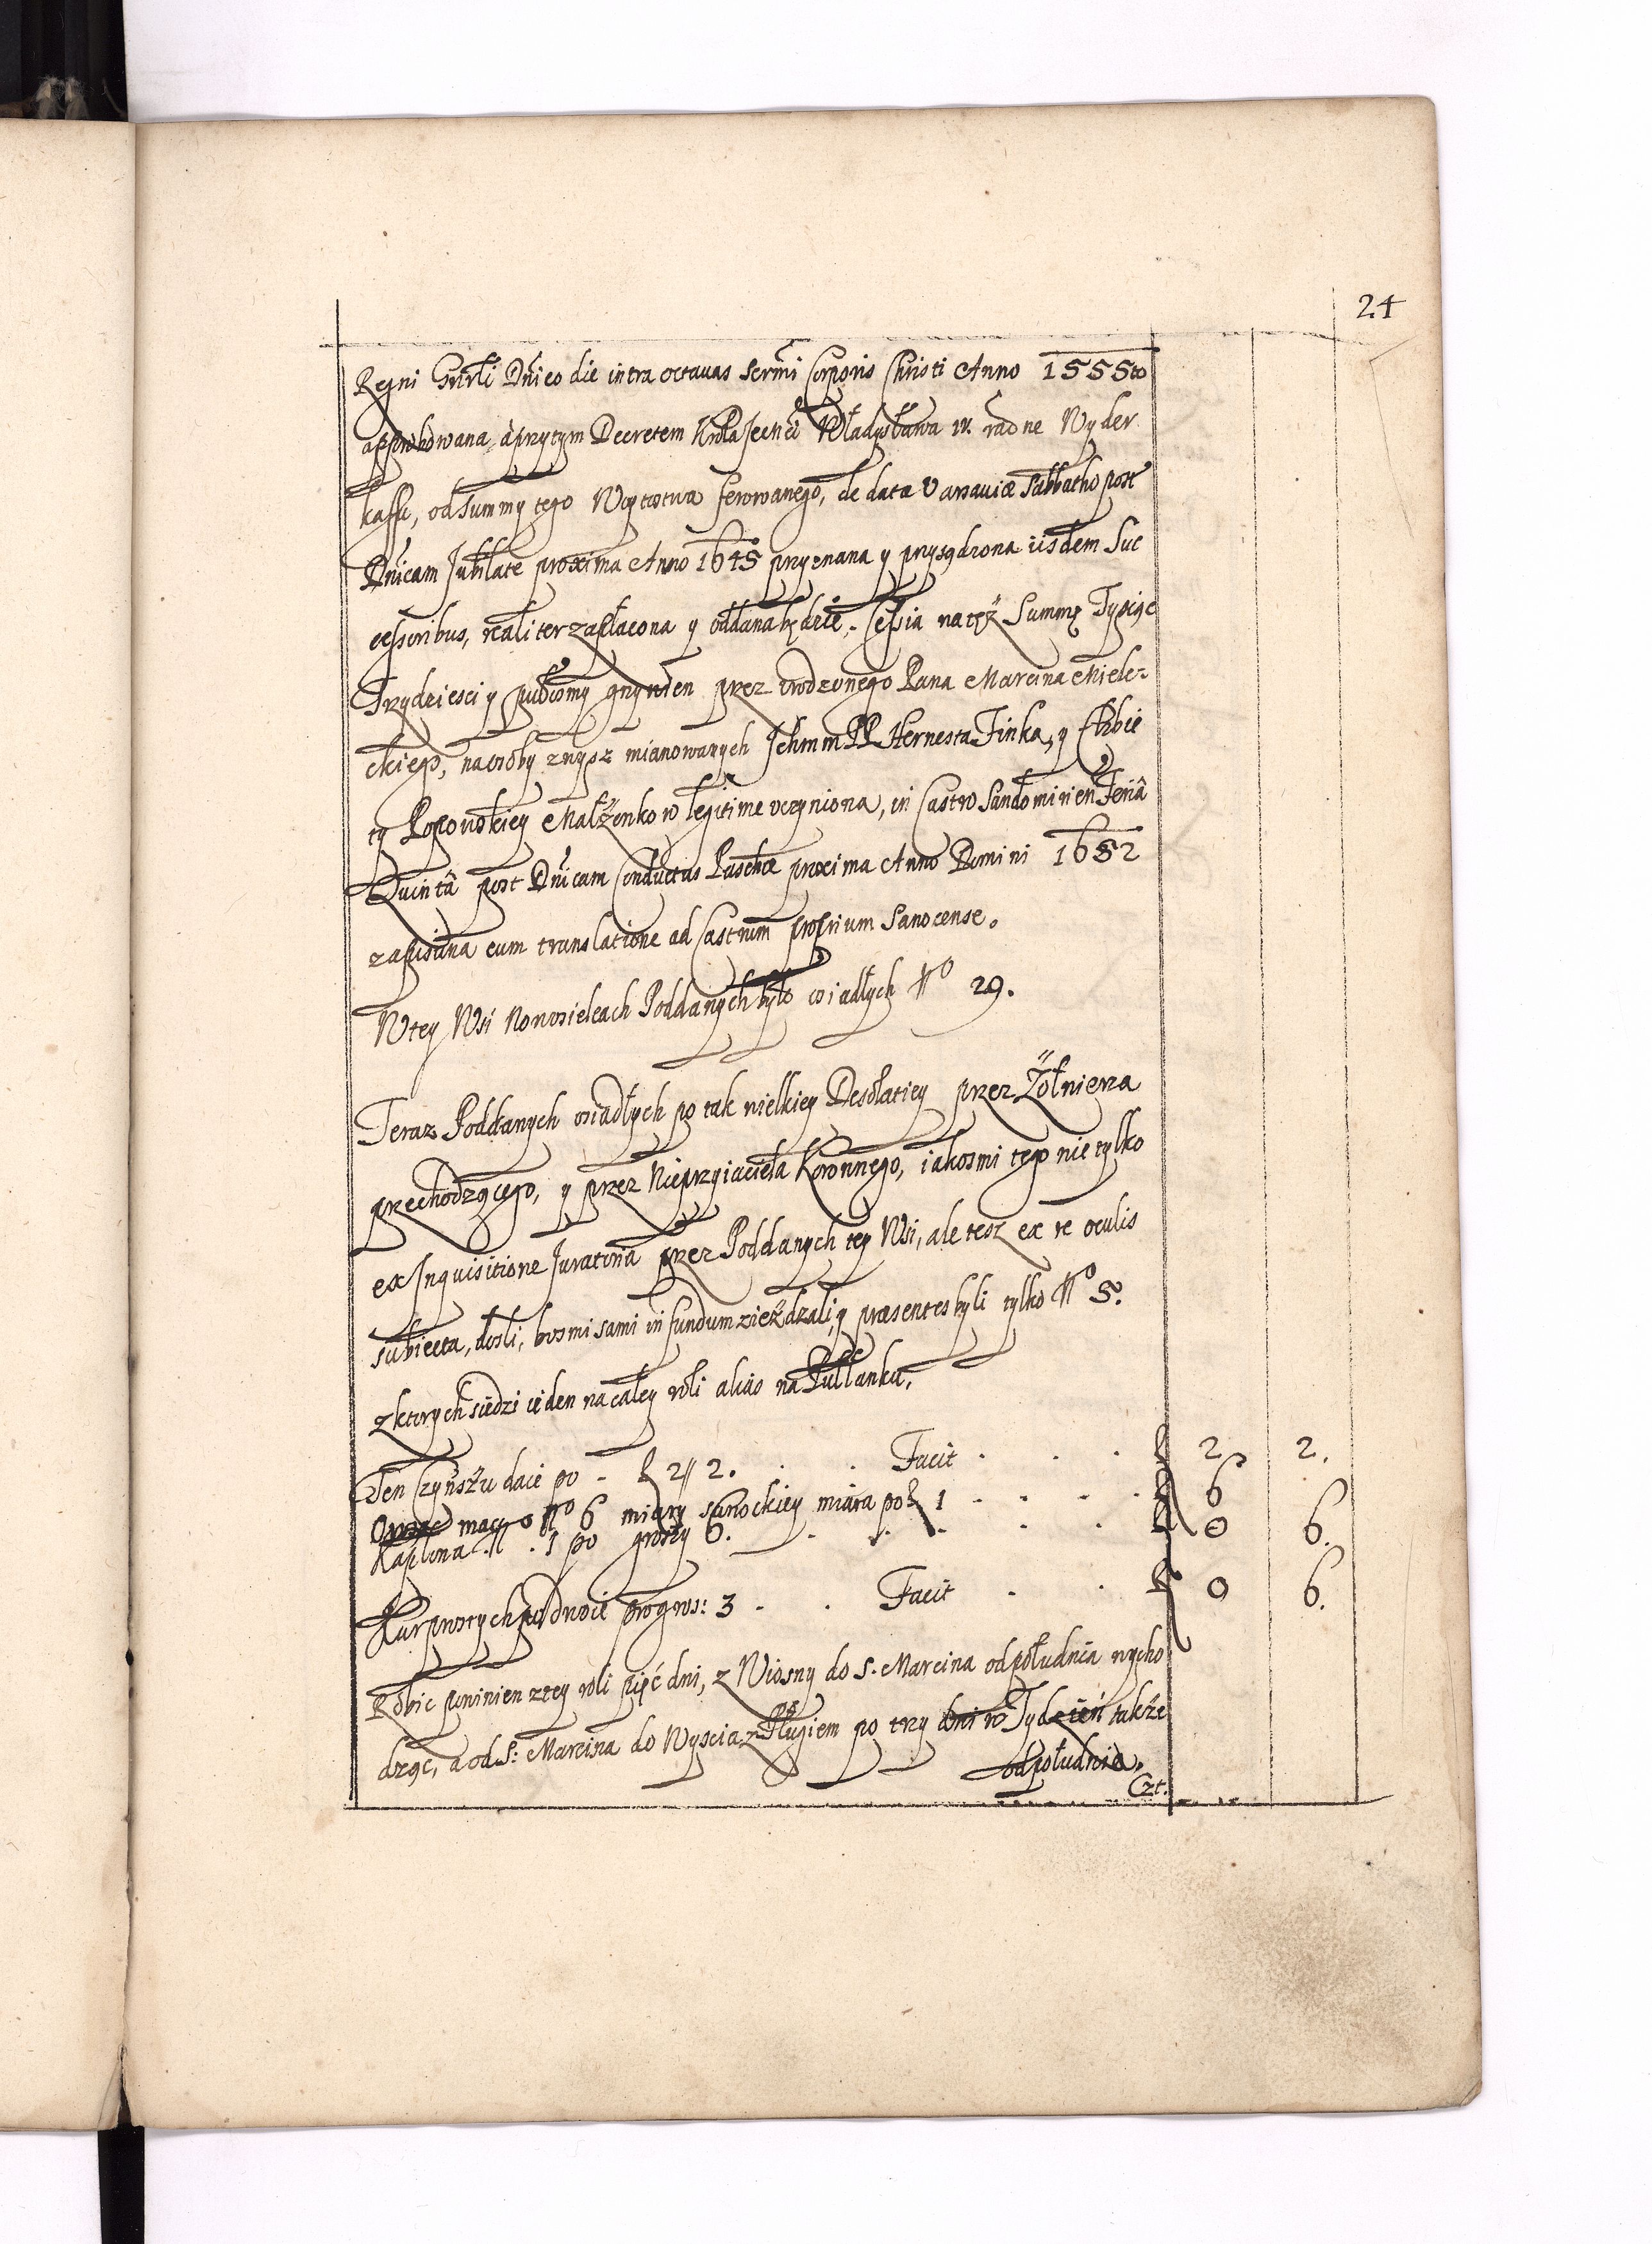 24
Regni Gnrli Dnico die intra octauas Sermi Corporis Christi Anno 1555to
approbowana, a przytym Decretem Krola Jecmci Władysława IV. ratione Wyder
kaffu, od Summy tego Woytostwa ferowanego, de data Varsauiæ Sabbatho post
Dnicam Jubilate proxima Anno 1645 przyznana y przysądzona iisdem Suc
cessoribus, realiter zapłacona y oddana będzie. Cessia na tęż Summę Tysiąc
Trzydziesci y pułosmy grzywien przez vrodzonego Pana Marcina Miele-
ckiego, na osoby zwysz mianowanych Jchmm PP. Hernesta Finka, y Elzbie
ty Poponskiey Małżenkow legitime vczyniona, in Castro Sandomirien Feriâ
Quintâ post Dnicam Conductus Paschæ proxima Anno Domini 1652
zapisana cum translatione ad Castrum proprium Sanocense.
W tey Wsi Nowosielcach Poddanych było osiadłych No 29.
Teraz Poddanych osiadłych po tak wielkiey Desolatiey przez Żołnierza
przechodzącego, y przez Nieprzyiaciela Koronnego, iakosmi tego nie tylko
ex Inquisitione Juratoria przez Poddanych tey Wsi, ale tesz ex re oculis
subiecta, doszli, bosmi sami in fundum zieżdzali, y præsentes byli tylko No 5.
z ktorych siedzi ieden na całey roli alias na Pułłanku,
Ten Czynszu daie po - f 2 // 2. . . Facit . . . f 2 2.
macy o No 6 miary sanockiey miara po f 1 . . . f 6
Kapłona N. 1 po groszy 6. . . . . f 0 6.
Kur prostych po dwoie po gros: 3 . . Facit . . f 0 6.
Robic powinien z tey roli pięć dni, z Wiosny do S. Marcina od południa wycho
dząc, a od S: Marcina do Wyscia z Pługiem po trzy dni w Tydzień także
od południa.
Czt.